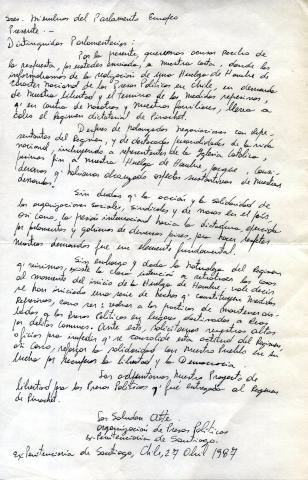 Sres. Miembros del Parlamento Europeo
Presente.-
Distinguidos Parlamentarios:
Por la presente, queremos acusar recibo de
la respuesta, por ustedes enviada, a nuestra carta, donde les
informábamos de la realización de una Huelga de Hambre de
carácter nacional de los Presos Políticos en Chile, en demanda
de Nuestra Libertad y el término de las medidas represivas,
q' en contra de nosotros y nuestros familiares, lleva a
cabo el Régimen dictatorial de Pinochet.
Después de prolongadas negociaciones con repre-
sentantes del Régimen, y de destacadas personalidades de la vida
nacional, incluyendo a representantes de la Iglesia Católica,
pusimos fin a nuestra Huelga de Hambre, porque, consi-
deramos q' habíamos alcanzado aspectos sustantivos de nuestras
demandas.
Sin dudas q' la acción y la solidaridad de
las organizaciones sociales, sindicales, y de masas en el país,
así como, la presión internacional hacia la dictadura, ejercida
por parlamentos y gobiernos de diversos países, para hacer respetar
nuestras demandas fue un elemento fundamental.
Sin embargo y dada la naturaleza del Régimen
q' vivimos, existe la clara intención de retrotraer las cosas
al momento del inicio de la Huelga de Hambre, vale decir
se han iniciado una serie de hechos q' constituyen medidas
Represivas, como ser: volver a las prácticas de mantener
a los Presos Políticos en lugares destinados a reos
por delitos comunes. Ante esto, solicitamos vuestros altos
oficios para impedir q' se consolide esta actitud del Régimen
así como reforzar la solidaridad con Nuestro Pueblo en su
lucha por recuperar la Libertad y la Democracia.
Les adjuntamos Nuestro Proyecto de
Libertad para los Presos Políticos q' fue entregado al Régimen
de Pinochet.
Les Saludan Atte.
Organización de Presos Políticos
ex-Penitenciaría de Santiago.
ex Penitenciaría de Santiago, Chile, 27 Abril 1987